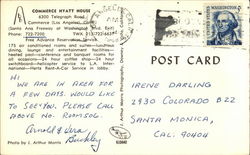 COMMERCE HYATT HOUSE
6300 Telegraph Road
Commerce (Los Angeles),
(Santa Ana Freeway at Washington
Phone: 722-7200 TWX 213-722-
Free Advance Reservation Service
175 air conditioned rooms and suites—luxurious
dining, lounge and entertainment facilities—
heated pool—conference and banquet rooms for
all occasions—24 hour coffee shop—24 hour
switchboard—helicopter service to L.A. International—Hertz Rent-A-Car Service in lobby.
HI
WE ARE IN AREA FOR
A FEW DAYS. WOULD LIKE
TO SEE YOU. PLEASE CALL
ABOVE NO.
Arnold & Vera
Buckley
Photo by J. Arthur Morris
POST CARD
IRENE DARLING
2930 COLORADO B22
SANTA MONICA,
CAL. 90404